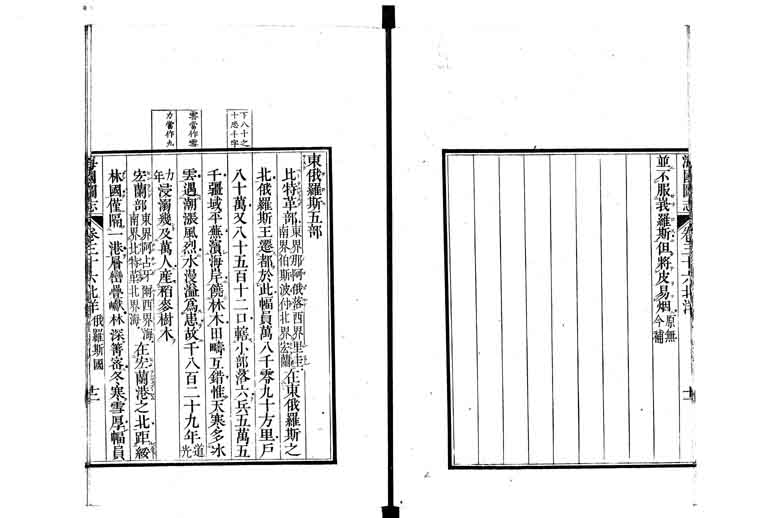 並不服莪羅斯但將皮易烟原無今補
海國圖志 卷三十六 北洋 十一
下八十之十恐千字
雲當作雪
力當作九
東俄羅斯五部
比特革部東界那阿俄落西界里圭南界伯斯波仲北界宏蘭在東俄羅斯之
北俄羅斯王遷都於此幅員萬八千零九十方里戸
八十萬又八十五百十二口轄小部落六兵五萬五
千疆域平蕪濵海岸饒林木田疇互錯惟天寒多冰
雲遇潮漲風烈水漫溢爲患故千八百二十九年道光
力年浸溺幾及萬人產稻麥樹木
宏蘭部東界阿占牙爾西界海南界北特革北界海在宏蘭港之北距綏
林國僅隔一港層巒疊巘林深箐密冬寒雪厚幅員
海國圖志 卷三十六 北洋 俄羅斯國 十二